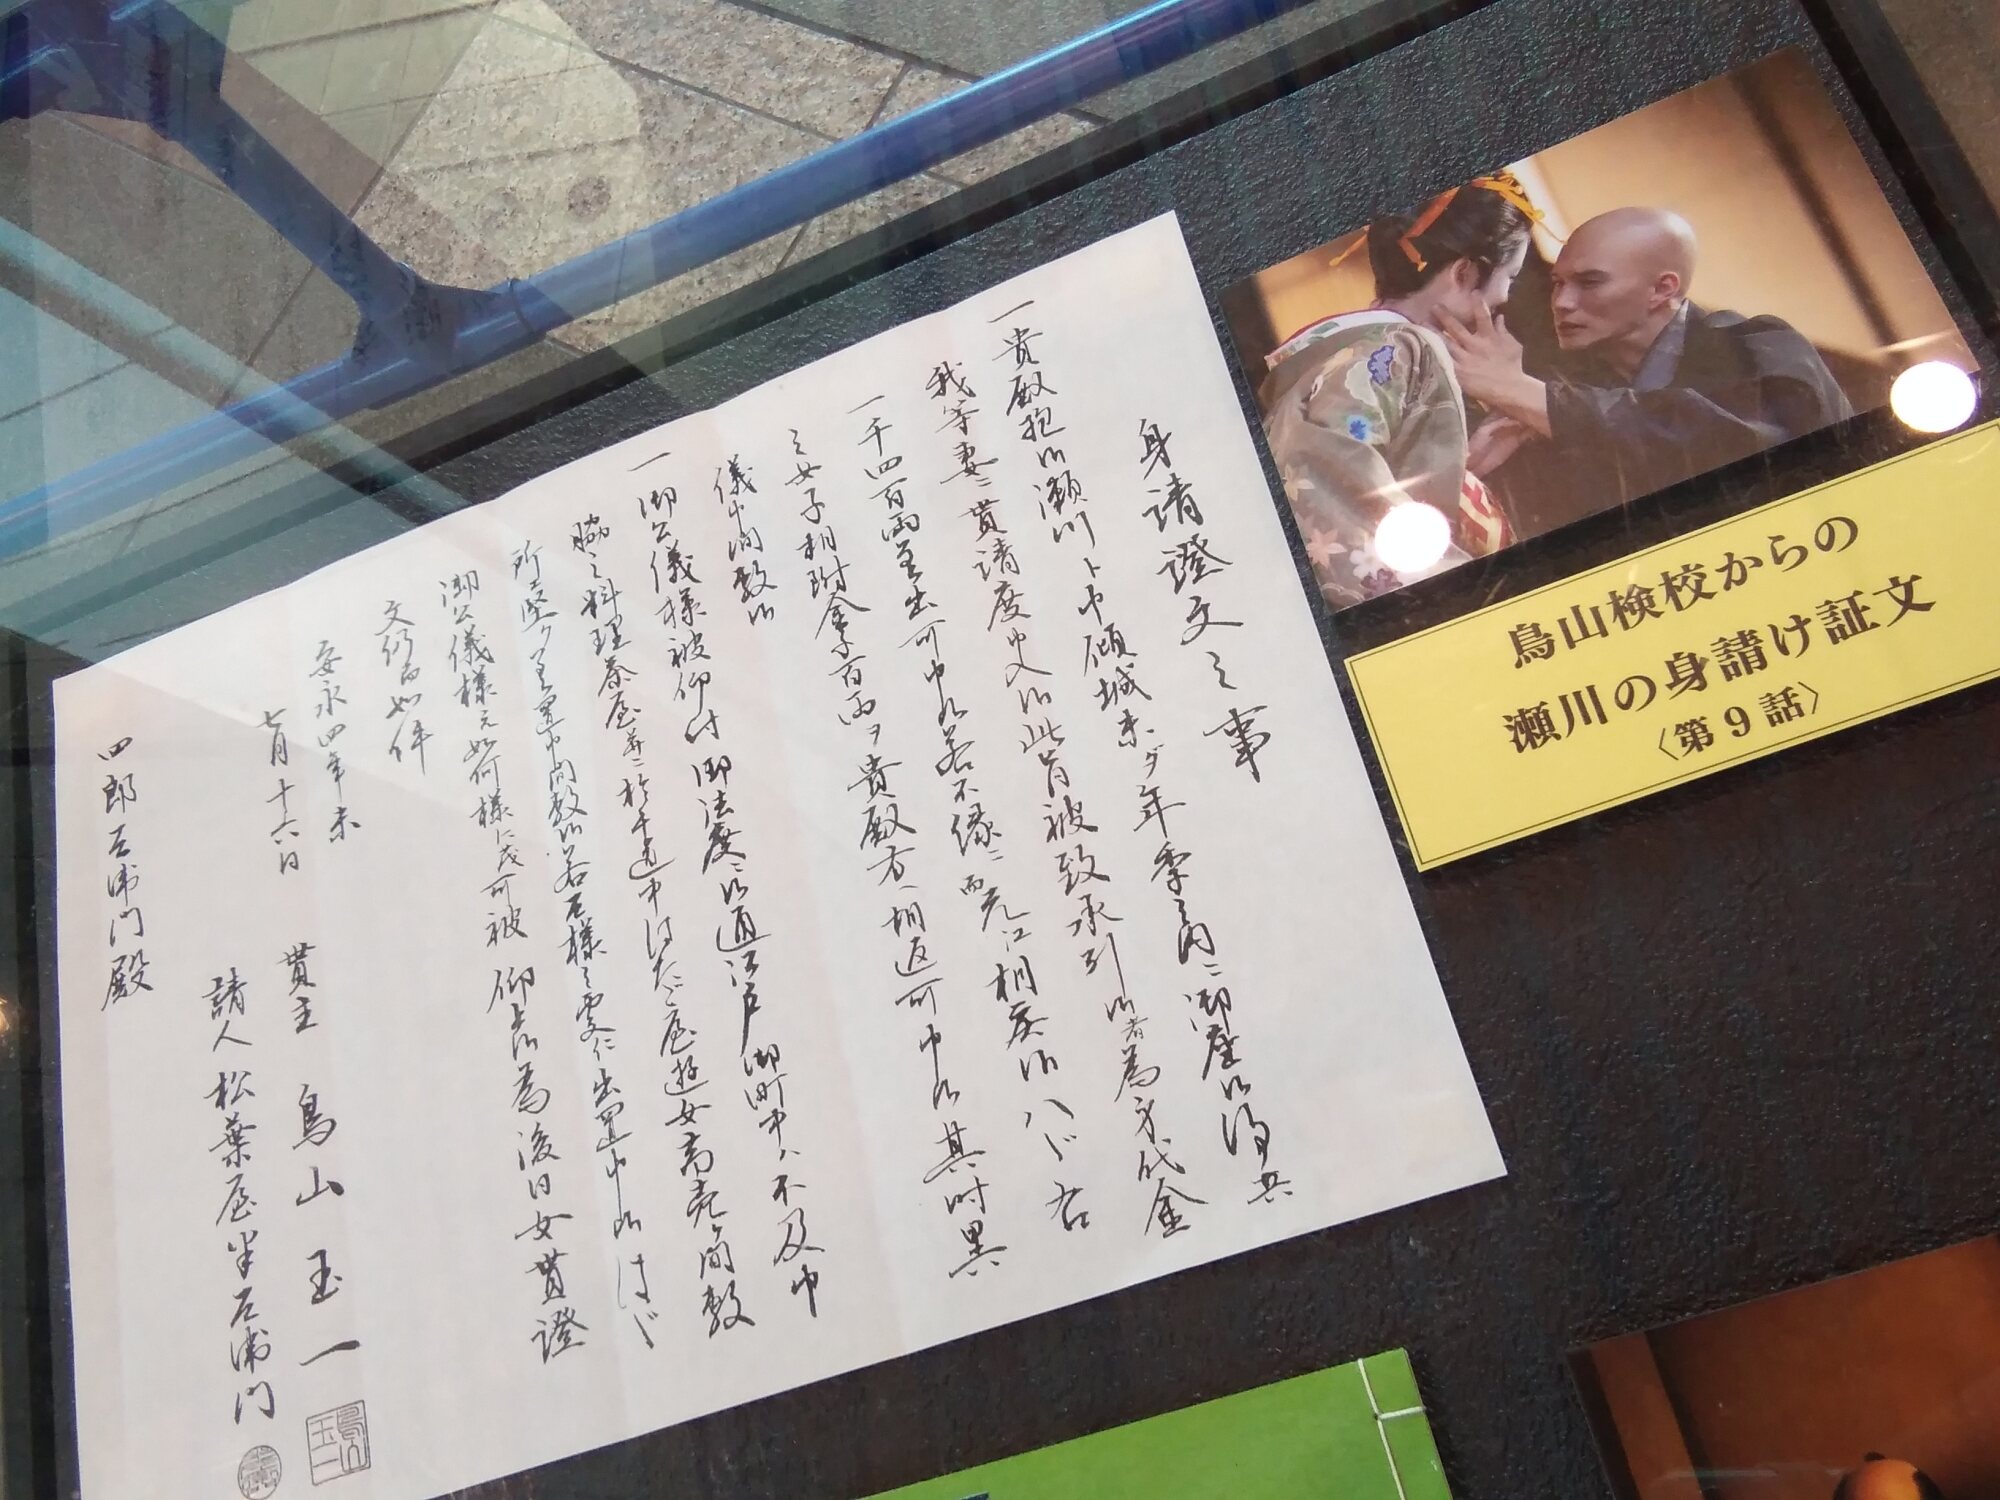 身請證文之事
一貴殿抱候瀬川ト申傾城未ダ年季之内ニ御座候得共
我等妻ニ貰請度申入候此旨被致承引候者為身代金
一千四百両差出可申候若不縁ニ而元江相戻候ハヾ右
之女子相附金子百両ヲ貴殿方へ相返可申候其時異
儀申間敷候
一御公儀様被仰付御法度ニ候通江戸御町中ハ不及申
脇之料理茶屋并ニ於子道中はたご屋遊女商売ヶ間敷
所ニ堅ク差置申間敷候若左様之處仁出置申候はゞ
御公儀様之如何様に茂可被仰上候為後日女貰證
文仍而如件
安永四年未
七月十六日
貰主 鳥山玉一
請人 松葉屋半左衛門
四郎左衛門殿
鳥山検校からの
瀬川の身請け証文
〈第9話〉